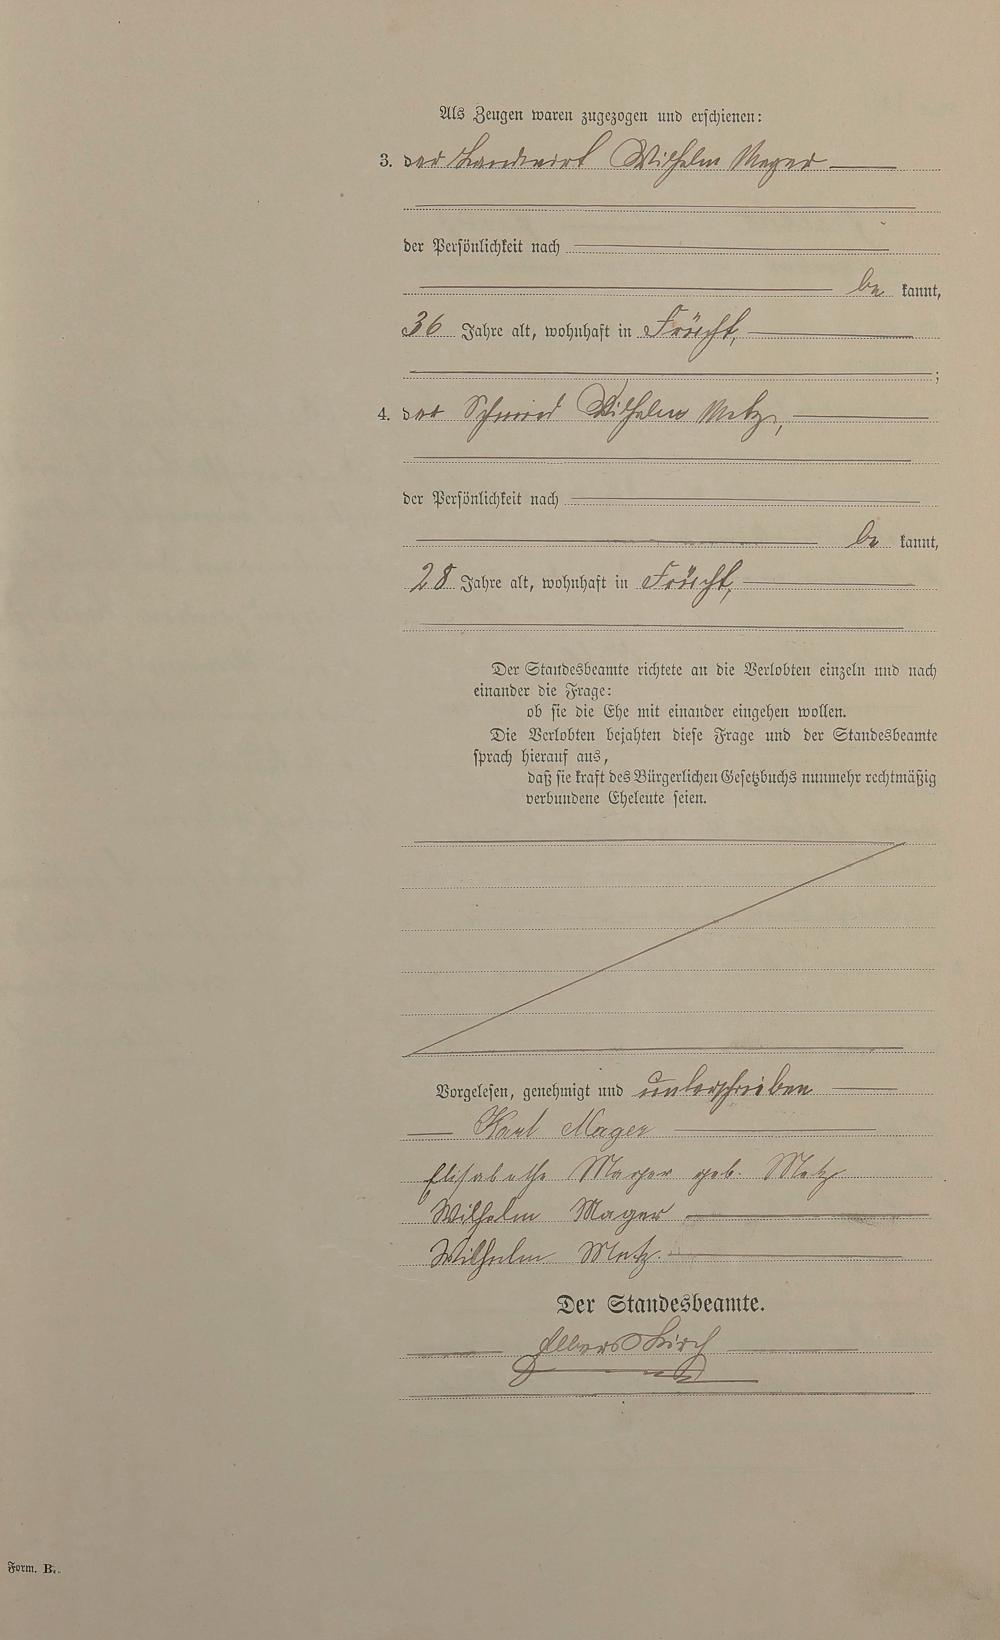 Als Zeugen waren zugezogen und erschienen:
3. der Landwirt Wilhelm Mager
der Persönlichkeit nach
be kannt,
36 Jahre alt, wohnhaft in Frücht,
;
4. der Schmied Wilhelm Metz,
der Persönlichkeit nach
be kannt,
28 Jahre alt, wohnhaft in Frücht,
Der Standesbeamte richtete an die Verlobten einzeln und nach
einander die Frage:
ob sie die Ehe mit einander eingehen wollen.
Die Verlobten bejahten diese Frage und der Standesbeamte
sprach hierauf aus,
daß sie kraft des Bürgerlichen Gesetzbuchs nunmehr rechtmäßig
verbundene Eheleute seien.
Vorgelesen, genehmigt und unterschrieben
Karl Mager
Elisabethe Mager geb. Metz
Wilhelm Mager
Wilhelm Metz.
Der Standesbeamte.
Form. B.